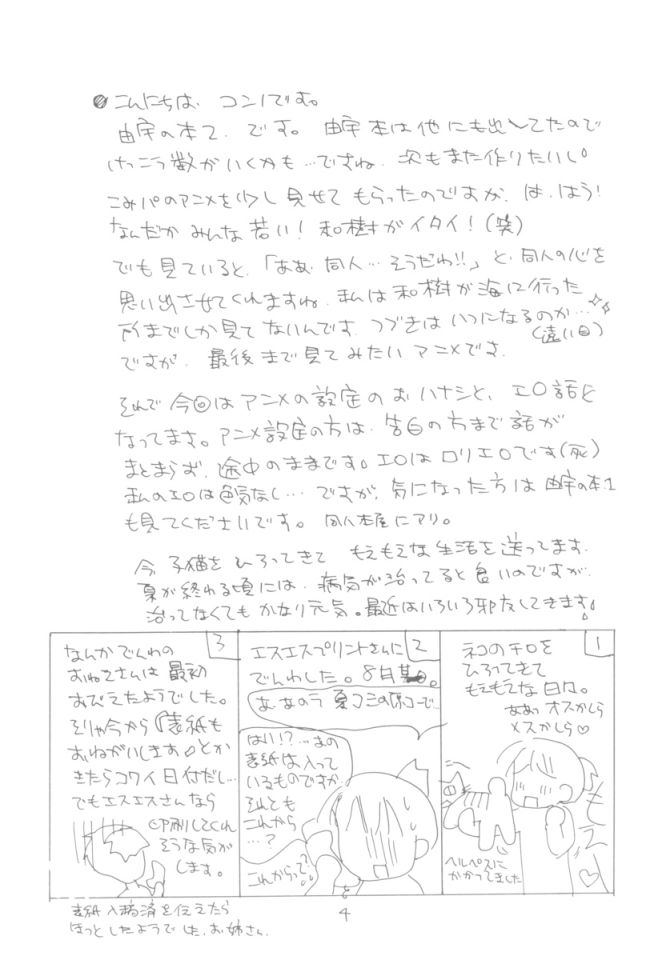 こんにちは、コンノです。
由宇の本2、です。由宇本は他にも出してたので
けっこう数がいくかも…ですね、次もまた作りたいし。
こみパのアニメを少し見せてもらったのですが、は、はう!
なんだかみんな若い!和樹がイタイ!(笑)
でも見ていると、「ああ、同人…そうだわ!!」と、同人の心を
思い出させてくれますね。私は和樹が海に行った
所までしか見てないんです。つづきはいつになるのか…
(遠い目)
ですが、最後まで見てみたいアニメです。
それで今回はアニメの設定のおハナシと、エロ話と
なってます。アニメ設定の方は、告白の方まで話が
まとまらず、途中のままです。エロはロリエロです(死)
私のエロは色気なし…ですが、気になった方は由宇の本1
も見てくださいです。同人本屋にアリ。
今子猫をひろってきてもえもえな生活を送ってます。
夏が終れる頃には、病気が治ってると良いのですが、
治ってなくてもかなり元気。最近はいろいろ邪魔してきます!
1
ネコのチロを
ひろってきて
もえもえな日々。
ああっオスかしら
メスかしら♡
もえ〜
♡
ヘルペスに
かかってました
2
エスエスプリントさんに
でんわした。8月某日。
あ、あのう夏コミの原コーで…
はい!?…あの
表紙は入って
いるものですか
それとも
これから
…?
これからって?!
3
なんかでんわの
おねえさんは最初
おびえたようでした。
そりゃ今から『表紙も
おねがいします♪』とか
きたらコワイ日付だし…
でもエスエスさんなら
印刷してくれ
そうな気が
します。
表紙入稿済を伝えたら
ほっとしたようでした、お姉さん。
4